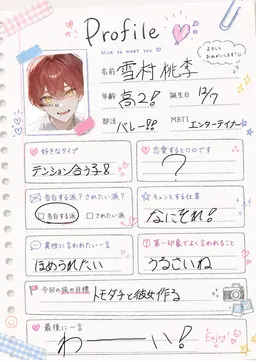 Profile
Nice to meet you
よろしくおねがいします!
名前 雪村桃李
年齢 高2! 誕生日 12/7
部活 バレー!! MBTI エンターテイナー
好きなタイプ
テンション合う子8
恋愛すると○○です
?
告白する派?されたい派?
告白する派 されたい派
キュンとする仕草
なにそれ!
異性に言われたい一言
ほめうれたい
第一印象でよく言われること
うるさいね
今回の旅の目標 トモダチと彼女作る
最後に一言
わーーい!
Enjoy!